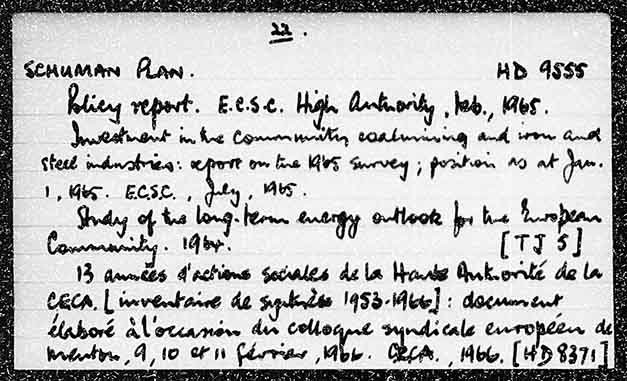 22.
SCHUMAN PLAN. HD 9555
Policy report. E.C.S.C. High Authority, Feb., 1965.
Investment in the Community coalmining and iron and
steel industries: report on the 1965 survey; position as at Jan.
1, 1965. E.C.S.C., July, 1965.
Study of the long-term energy outlook for the European
Community. 1964. [TJ 5]
13 années d'actions sociales de la Haute Autorité de la
CECA. [inventaire de synthèse 1953-1966]: document
élaboré à l'occasion du colloque syndicale européen de
Menton, 9, 10 et 11 février, 1966. CECA., 1966. [HD 8371]